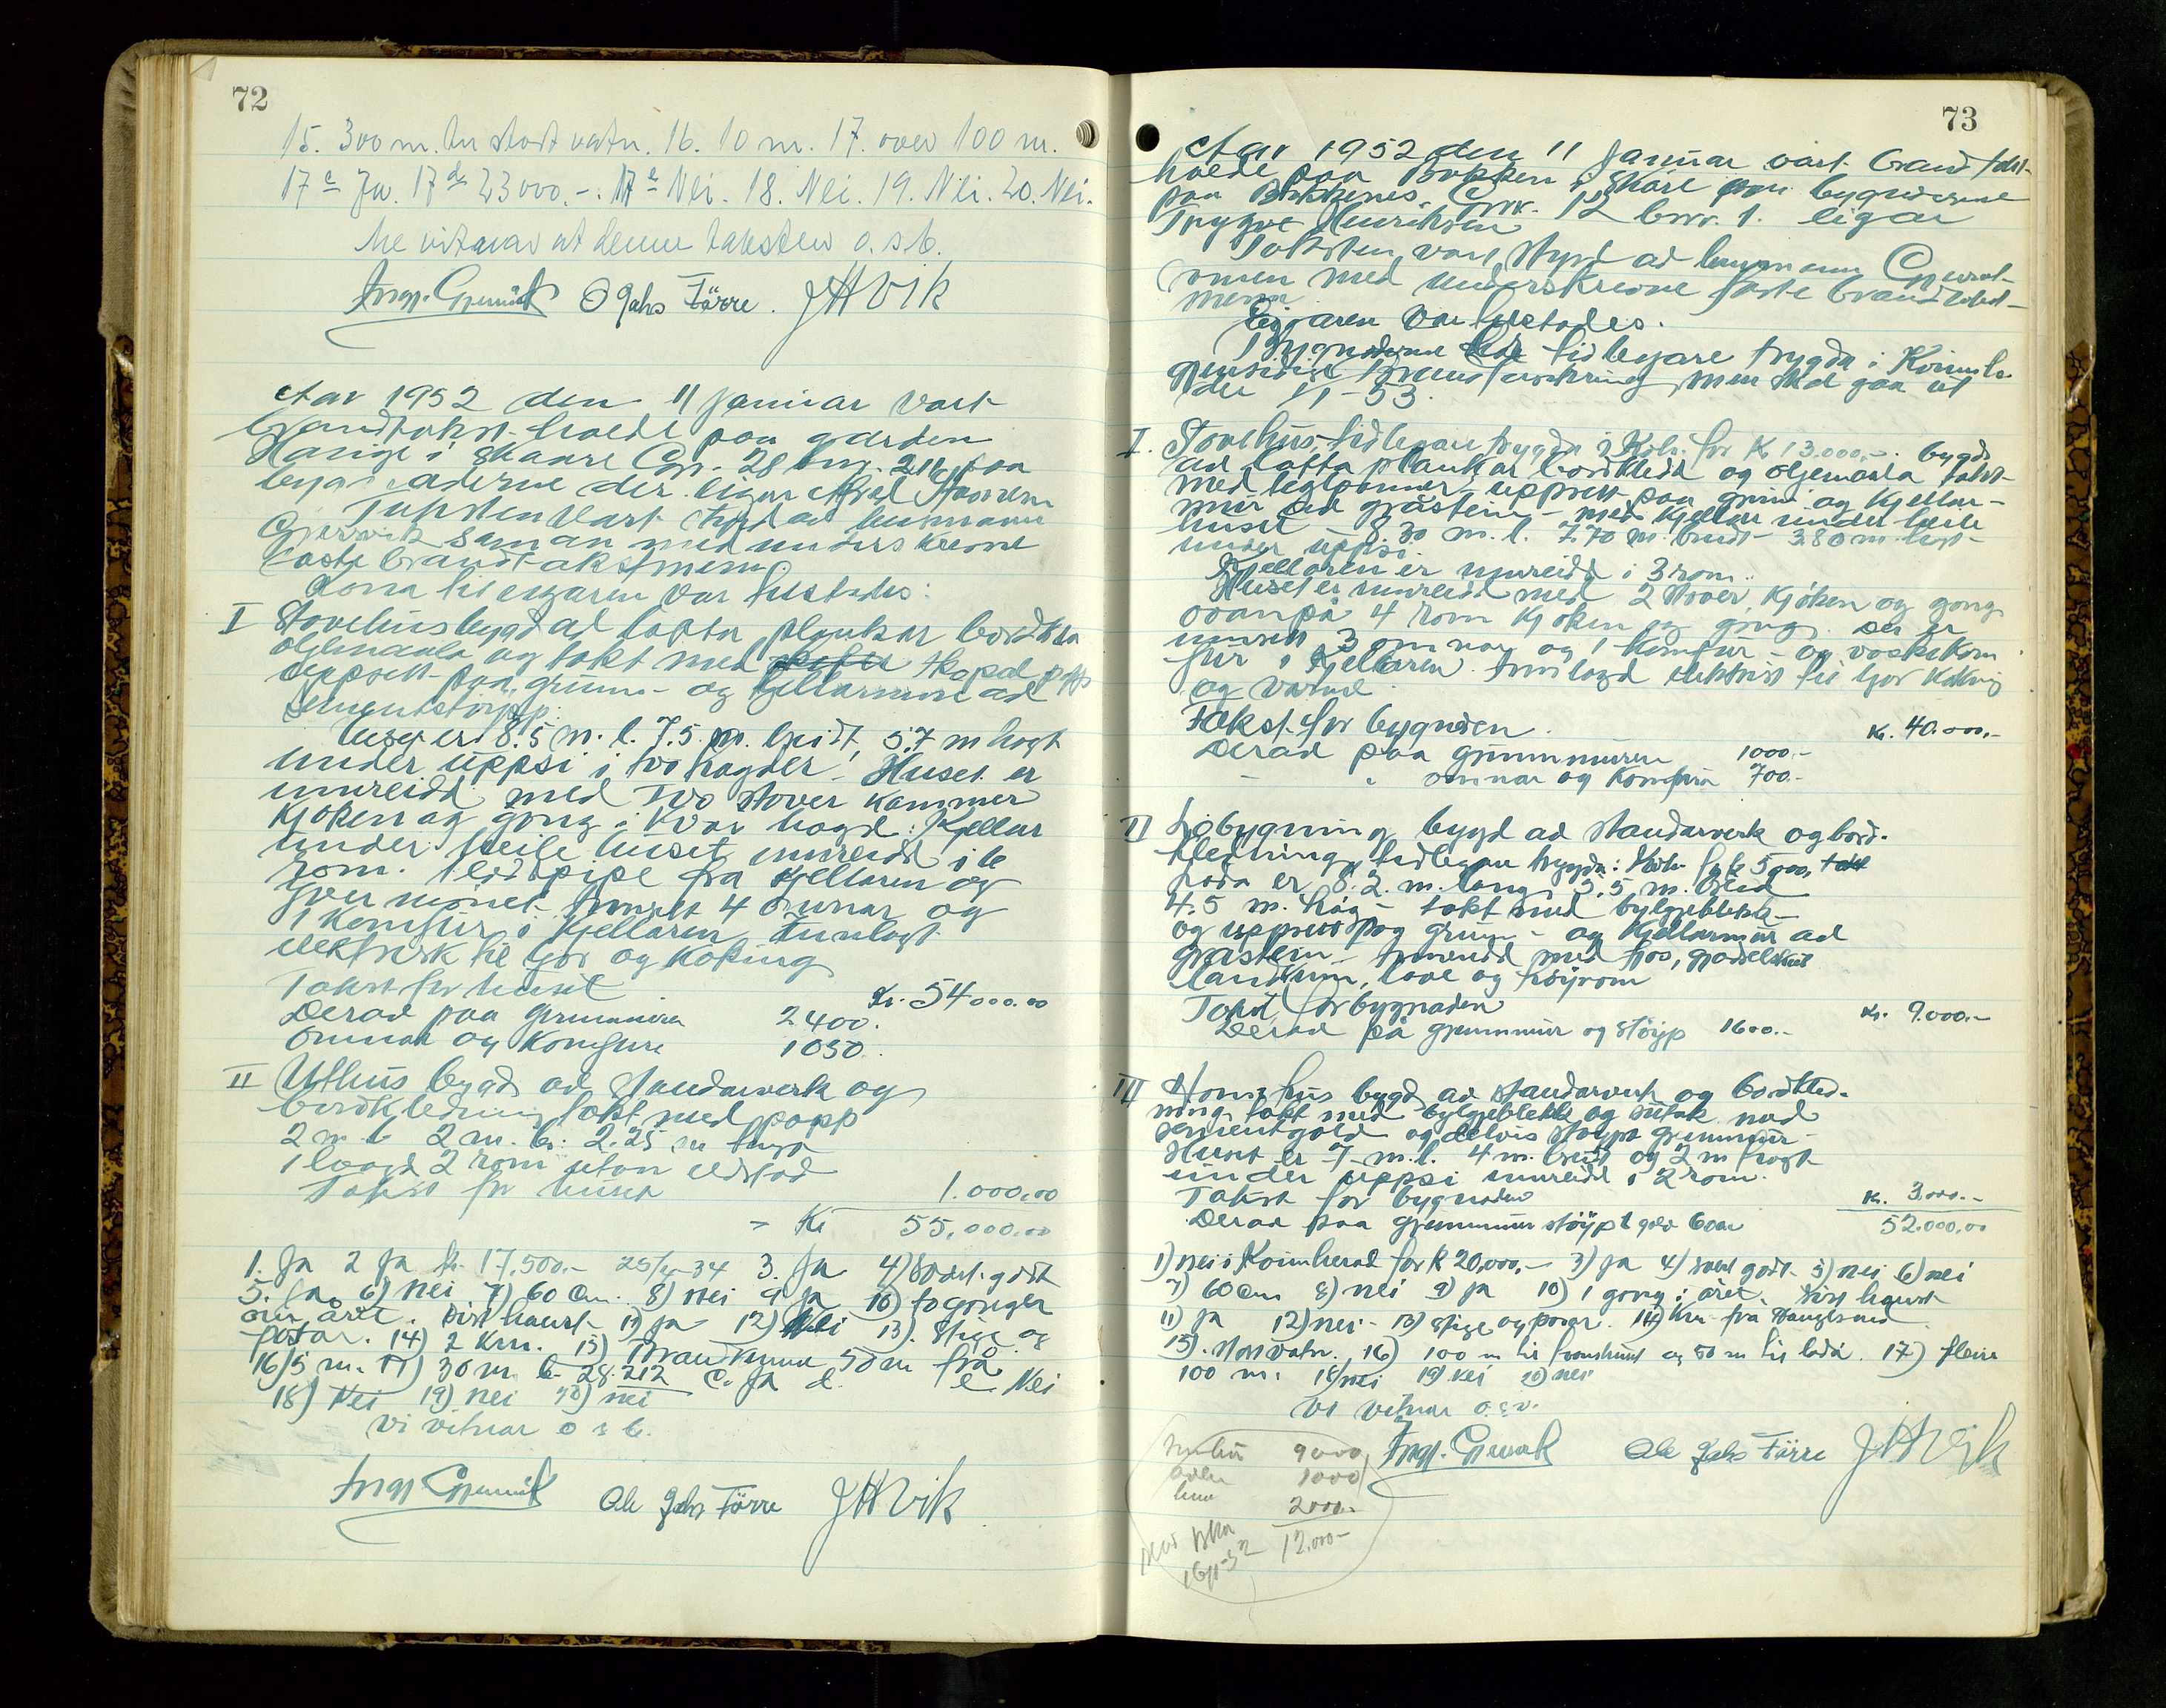 72
15. 300 m. til stort vatn. 16. 10 m. 17. over 100 m.
17 c Ja. 17 d 23000.-. 17 e Nei. 18. Nei. 19. Nei. 20. Nei.
Me vitnar at denne taksten o.s.b.
Ingv. Gjervik O Jahs Førre. JH Vik
Aar 1952 den 11 januar vart
brandtakst halde paa garden
Hauge i Skaare Gn. 28 bnr. 216 paa
bygnaderne der. eigar
Taksten vart styrd av lensmann
Gjervik saman med underskrevne
faste brandtakstmenn.
Kona til eigaren var tilstades:
I Stovehus bygd ad lafta plankar bordkleda
oljemaala og takt med papp
uppsett paa grunn- og kjellarmur ad
sementstøypp.
Huset er 8.5 m. l. 7.5 m. breidt 5.7 m høgt
under uppsi i two høgder! Huset er
innreidd med two stover kammer
kjøken og gong i kvar høgd: Kjellar
under heile huset innreidd i 6
rom. 1 eldpipe fra kjellaren og
yver mønet - innsett 4 omnar og
1 komfur i kjellaren Innlagt
elektrisk til ljos og koking
Takst for huset Kr. 54000.00
Derad paa grunnmuren 2400.
omnar og komfure 1050.
II Uthus bygd ad standarverk og
bordkledning takt med papp
2 m. l. 2 m. br. 2.25 m høgt
1 høgd 2 rom utan eldstad
Takst for huset 1.000,00
= Kr 55,000.00
1. Ja 2 Ja kr. 17.500.- 25/4-34 3. Ja 4) Særl. godt
5. Ja. 6) nei 7) 60 Cm. 8) nei 9 ja 10) to gonger
om året. sist haust 11) ja 12) Nei 13). Stige og
14) 2 Km. 15) Brandkumme 50 m frå
16) 5 m. 17) 30 m b- 28.212 C. ja d. e. Nei
18) Nei 19) nei 20) nei
Vi vitnar o s b.
Ingv Gjervik Ole Jahs Førre JH Vik
73
Aar 1952 den 11 januar vart brandtakst
halde paa Bakken i Skåre paa bygnaderne
paa Gnr. 12 bnr. 1. eigar
Trygve Henriksen
Taksten vart styrd ad lensmann Gjervik
saman med underskrevne faste brandtakst-
menn
Eigaren var tilstades.
Bygnaderne er tidlegare trygda i Kvinnh.
gjensidige Brandforsikring men skal gaa ut
der 1/1-53.
I. Stovehus, tidlegare trygda i Kvh. for kr 13.000.-. bygd
ad lafta plankar bordkledd og oljemaala takt
med teglpanner - uppsett paa grunn og kjellar-
mur ad gråstein - med kjellar under heile
huset - 8.30 m. l. 7.70 m. breidt 3.80 m. høgt
under uppsi.
Kjellaren er innreidd i 3 rom.
Huset er innreidd med 2 stover, kjøken og gong
ovanpå 4 rom kjøken og gong. Der er
innsett 3 omnar og 1 komfur - og vaskekom
fur i kjellaren. Innlagd elektrisk til ljos koking
og varme
Takst for bygnaden Kr. 40.000,-
Derad paa grunnmuren 1000.-
- " omnar og komfura 700.-
II Løbygning bygd ad standarverk og bord-
kledning, tidlegare trygda: Kvh. for kr 5000, takt
Løda er 8.2. m. lang, 5.5 m. breid
4.5 m. høg - takt med bylgjeblekk-
og uppsett paa grunn - og kjellarmur ad
gråstein - innreidd med fjos, gjødselkum
landkum, løve og høyrom
Takst for bygnaden Kr. 9.000.-
Derad på grunnmur og støyp 1600.-
III Hønsehus bygd av standarverk og bordkled-
ning. takt med bylgjeblekk og sutak med
sementgolv og delvis støypt grunnmur-
Huset er 7 m. l. 4 m. breidt og 2 m høgt
under uppsi innreidd i 2 rom.
Takst for bygnaden Kr. 3,000.-
Derad paa grunnmur støypt golv 600.- 52.000,00
1) nei i Kvinnherad for k 20,000.- 3) ja 4) svert godt 5) nei 6) nei
7) 60 Cm 8) nei 9) ja 10) 1 gong i året. Sist haust
11) ja 12) nei - 13) stige og 14) Km. fra Haugesund
15). Stort vatn. 16) 100 m til framhuset og 50 m til løda. 17) fleire
100 m. 18) nei 19) nei 20) nei
Vi vitnar o.s.v.
Ingv. Gjervik Ole Jahs Førre JH Vik
9000
1000
2000.-
12.000-
16/1-52